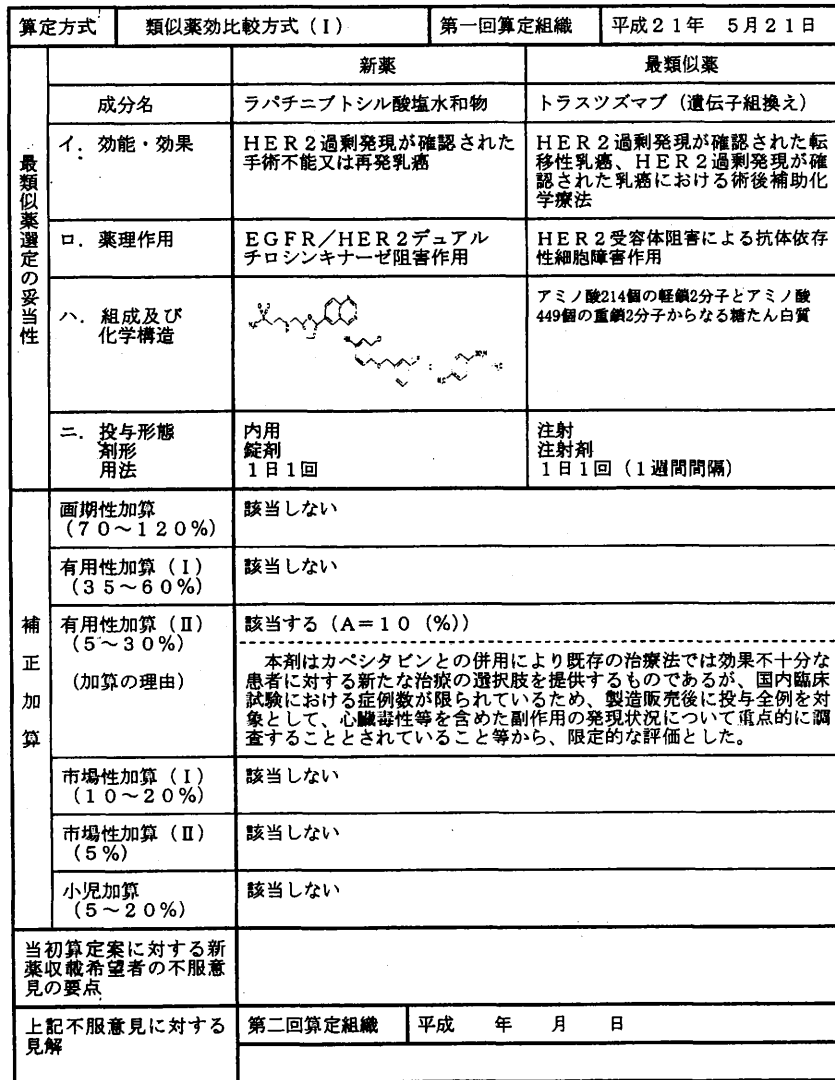 算定方式 類似薬効比較方式（Ⅰ） 第一回算定組織 平成２１年 ５月２１日
最類似薬選定の妥当性
新薬 最類似薬
成分名 ラパチニブトシル酸塩水和物 トラスツズマブ（遺伝子組換え）
イ．効能・効果
ＨＥＲ２過剰発現が確認された
手術不能又は再発乳癌
ＨＥＲ２過剰発現が確認された転
移性乳癌、ＨＥＲ２過剰発現が確
認された乳癌における術後補助化
学療法
ロ．薬理作用
ＥＧＦＲ／ＨＥＲ２デュアル
チロシンキナーゼ阻害作用
ＨＥＲ２受容体阻害による抗体依存
性細胞障害作用
ハ．組成及び
化学構造
アミノ酸214個の軽鎖2分子とアミノ酸
449個の重鎖2分子からなる糖たん白質
ニ．投与形態
剤形
用法
内用
錠剤
１日１回
注射
注射剤
１日１回（１週間間隔）
補正加算
画期性加算
（７０～１２０％）
該当しない
有用性加算（Ⅰ）
（３５～６０％）
該当しない
有用性加算（Ⅱ）
（５～３０％）
（加算の理由）
該当する（Ａ＝１０（％））
本剤はカペシタビンとの併用により既存の治療法では効果不十分な
患者に対する新たな治療の選択肢を提供するものであるが、国内臨床
試験における症例数が限られているため、製造販売後に投与全例を対
象として、心臓毒性等を含めた副作用の発現状況について重点的に調
査することとされていること等から、限定的な評価とした。
市場性加算（Ⅰ）
（１０～２０％）
該当しない
市場性加算（Ⅱ）
（５％）
該当しない
小児加算
（５～２０％）
該当しない
当初算定案に対する新
薬収載希望者の不服意
見の要点
上記不服意見に対する
見解
第二回算定組織 平成 年 月 日